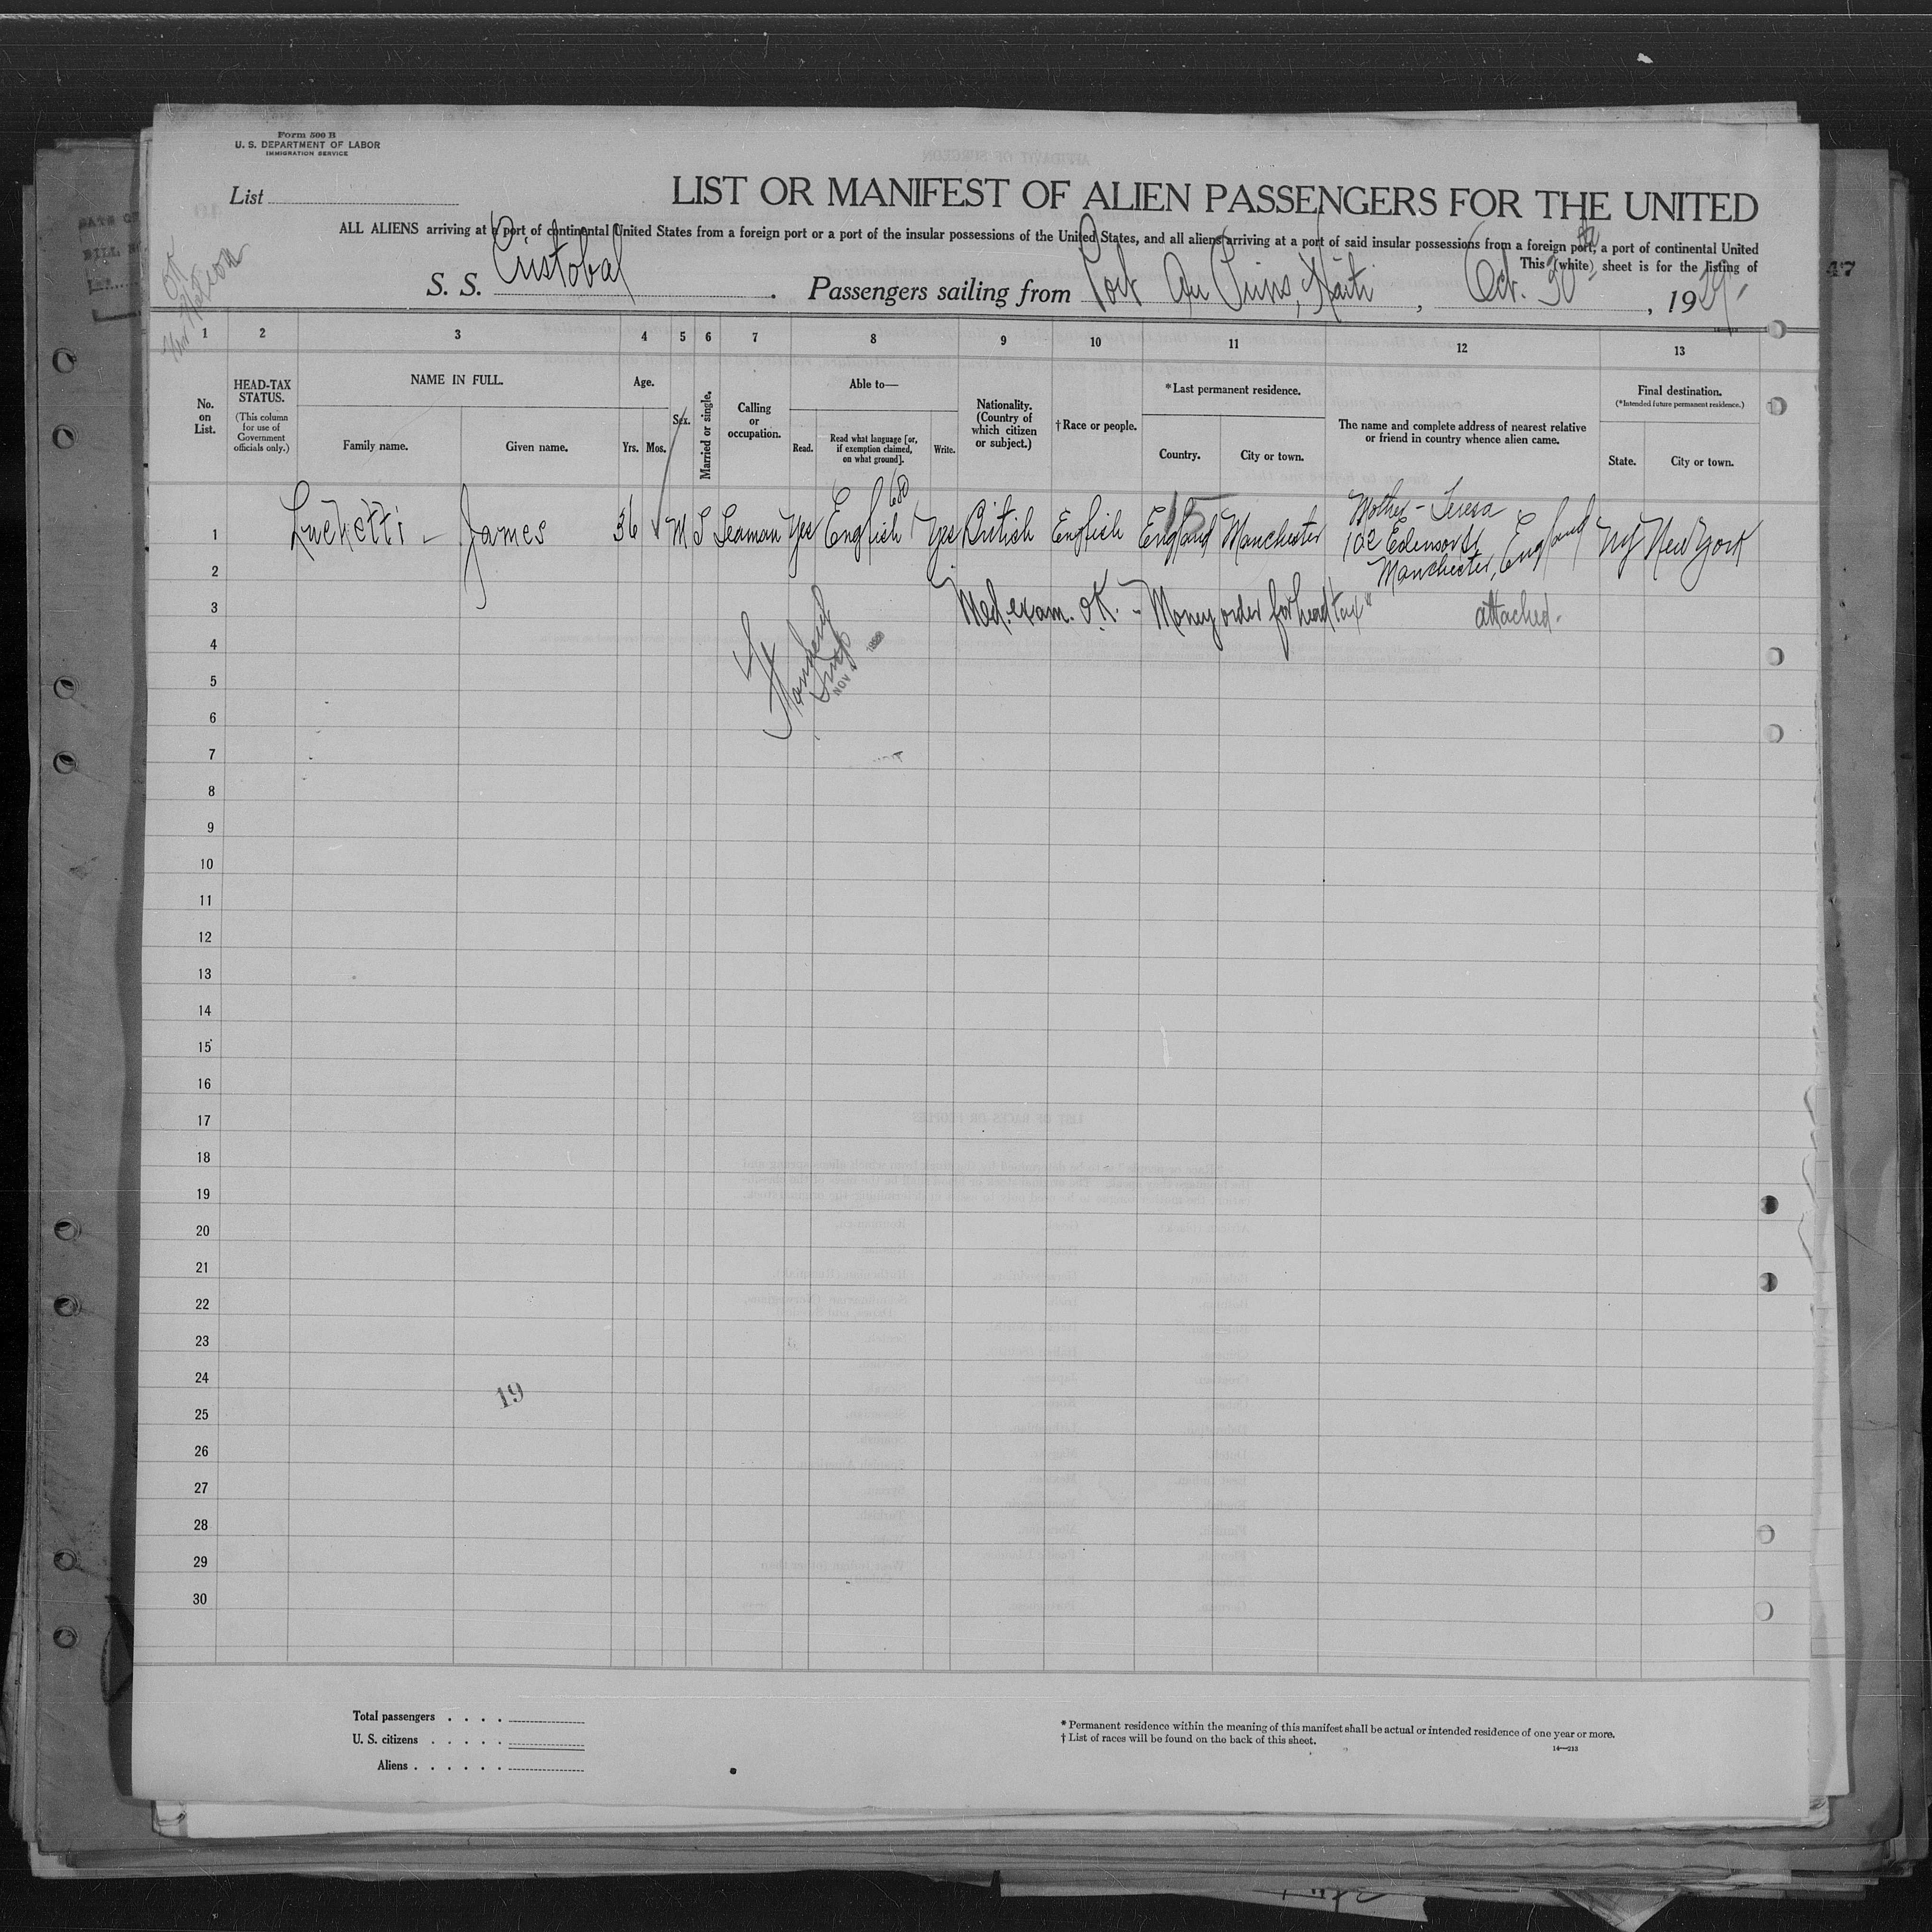 Form 500 B
U. S. DEPARTMENT OF LABOR
IMMIGRATION SERVICE
List
LIST OR MANIFEST OF ALIEN PASSENGERS FOR THE UNITED
ALL ALIENS arriving at a port of continental United States from a foreign port or a port of the insular possessions of the United States, and all aliens arriving at a port of said insular possessions from a foreign port, a port of continental United
This (white) sheet is for the listing of
OK
S. S. Cristobal. Passengers sailing from Port Au Prins, Haiti, Oct. 30th, 1929.
47
1 2 3 4 5 6 7 8 9 10 11 12 13
No. on List.
HEAD-TAX STATUS.
(This column for use of Government officials only.)
NAME IN FULL.
Family name. Given name.
Age.
Yrs. Mos.
Sex.
Married or single.
Calling or occupation.
Able to—
Read. Read what language [or, if exemption claimed, on what ground]. Write.
Nationality. (Country of which citizen or subject.)
†Race or people.
*Last permanent residence.
Country. City or town.
The name and complete address of nearest relative or friend in country whence alien came.
Final destination.
(*Intended future permanent residence.)
State. City or town.
680
15
1 Luchetti - James 36 M S Seaman Yes English Yes British English England Manchester Mother - Teresa 102 Edensor St Manchester, England NY New York
2
3 Med. exam. O.K. - Money order for head tax" attached.
4
NOV
5
6
7
8
9
10
11
12
13
14
15
16
17
18
19
20
21
22
23
24
19
25
26
27
28
29
30
Total passengers . . . .
U. S. citizens . . . . .
Aliens . . . . . .
* Permanent residence within the meaning of this manifest shall be actual or intended residence of one year or more.
† List of races will be found on the back of this sheet.
14—213